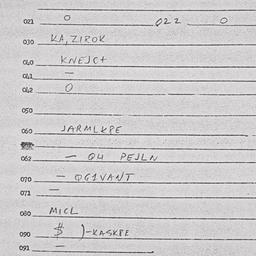 021 0 022 0
030 KA,ZIROK
040 KNEJC+
041 —
042 0
050
060 JARMLKPE
062 — Q4 PEJLN
070 — QG1VANT
071 —
080 MICL
090 $ )-KASKPE
091 —